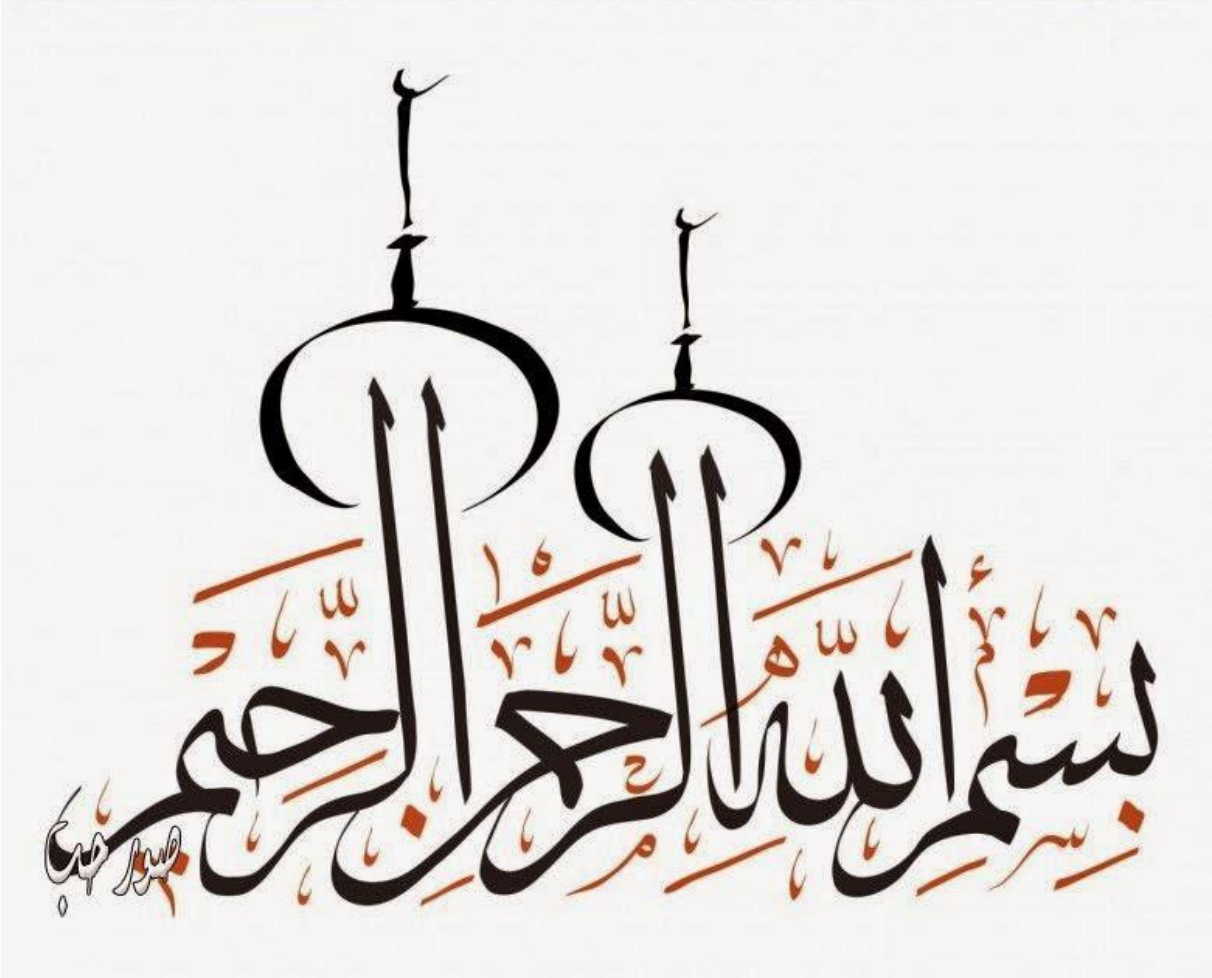 بِسْمِ اللَّهِ الرَّحْمَنِ الرَّحِيمِ
صور حب